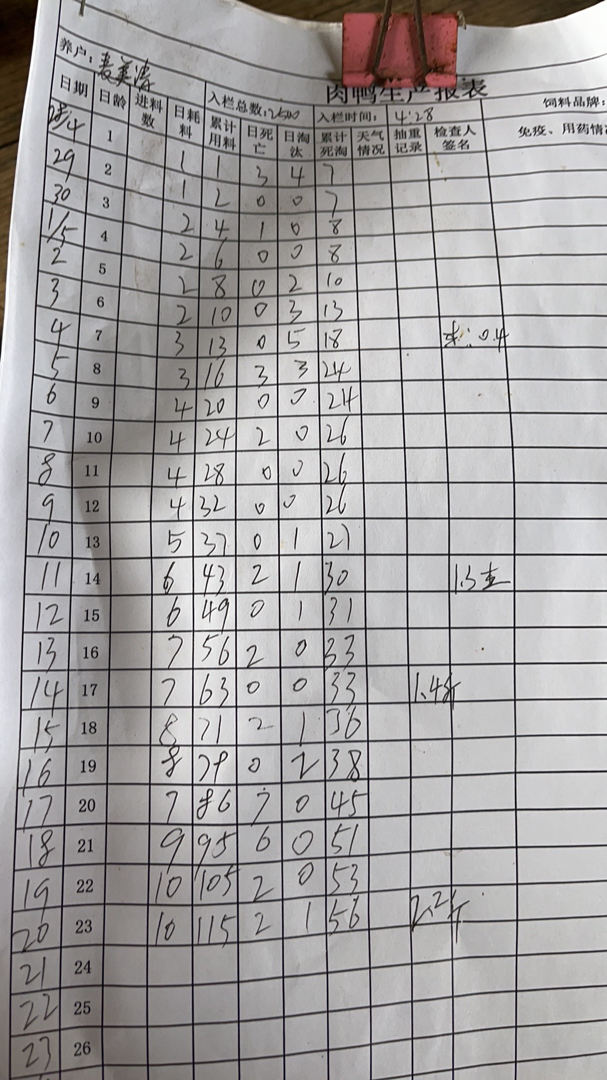 肉鸭生产报表
养户：
入栏总数：2500 入栏时间：4:28 饲料品牌：
日期 日龄 进料数 日耗料 累计用料 日死亡 日淘汰 累计死淘 天气情况 抽重记录 检查人签名 免疫、用药情
28/4 1 1 1 3 4 7
29 2 1 2 0 0 7
30 3 2 4 1 0 8
1/5 4 2 6 0 0 8
2 5 2 8 0 2 10
3 6 2 10 0 3 13
4 7 3 13 0 5 18 0.4
5 8 3 16 3 3 24
6 9 4 20 0 0 24
7 10 4 24 2 0 26
8 11 4 28 0 0 26
9 12 4 32 0 0 26
10 13 5 37 0 1 27
11 14 6 43 2 1 30 1.3
12 15 6 49 0 1 31
13 16 7 56 2 0 33
14 17 7 63 0 0 33 1.4斤
15 18 8 71 2 1 36
16 19 8 79 0 2 38
17 20 7 86 7 0 45
18 21 9 95 6 0 51
19 22 10 105 2 0 53
20 23 10 115 2 1 56 2.2斤
21 24
22 25
23 26